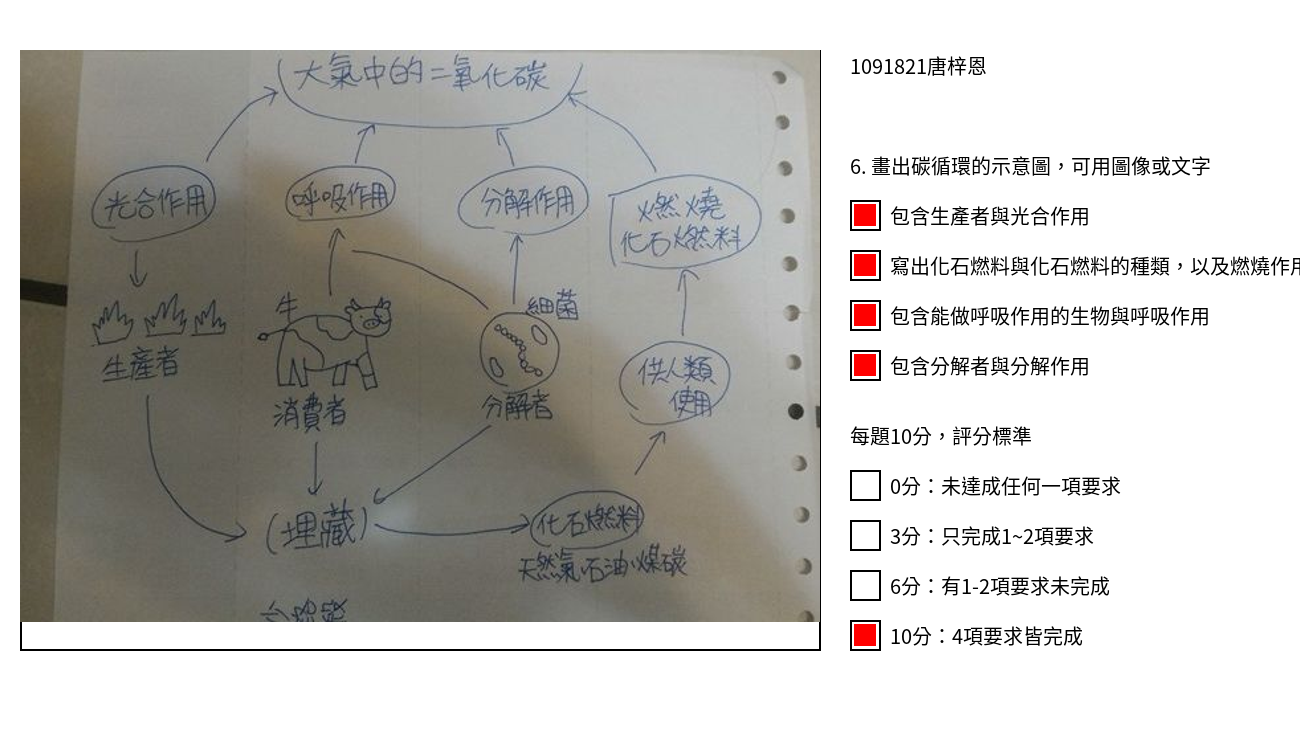 大氣中的二氧化碳
光合作用
呼吸作用
分解作用
燃燒
化石燃料
牛
細菌
生產者
消費者
分解者
供人類
使用
(埋藏)
化石燃料
天然氣、石油、煤碳
1091821唐梓恩
6. 畫出碳循環的示意圖，可用圖像或文字
包含生產者與光合作用
寫出化石燃料與化石燃料的種類，以及燃燒作用
包含能做呼吸作用的生物與呼吸作用
包含分解者與分解作用
每題10分，評分標準
0分：未達成任何一項要求
3分：只完成1~2項要求
6分：有1-2項要求未完成
10分：4項要求皆完成